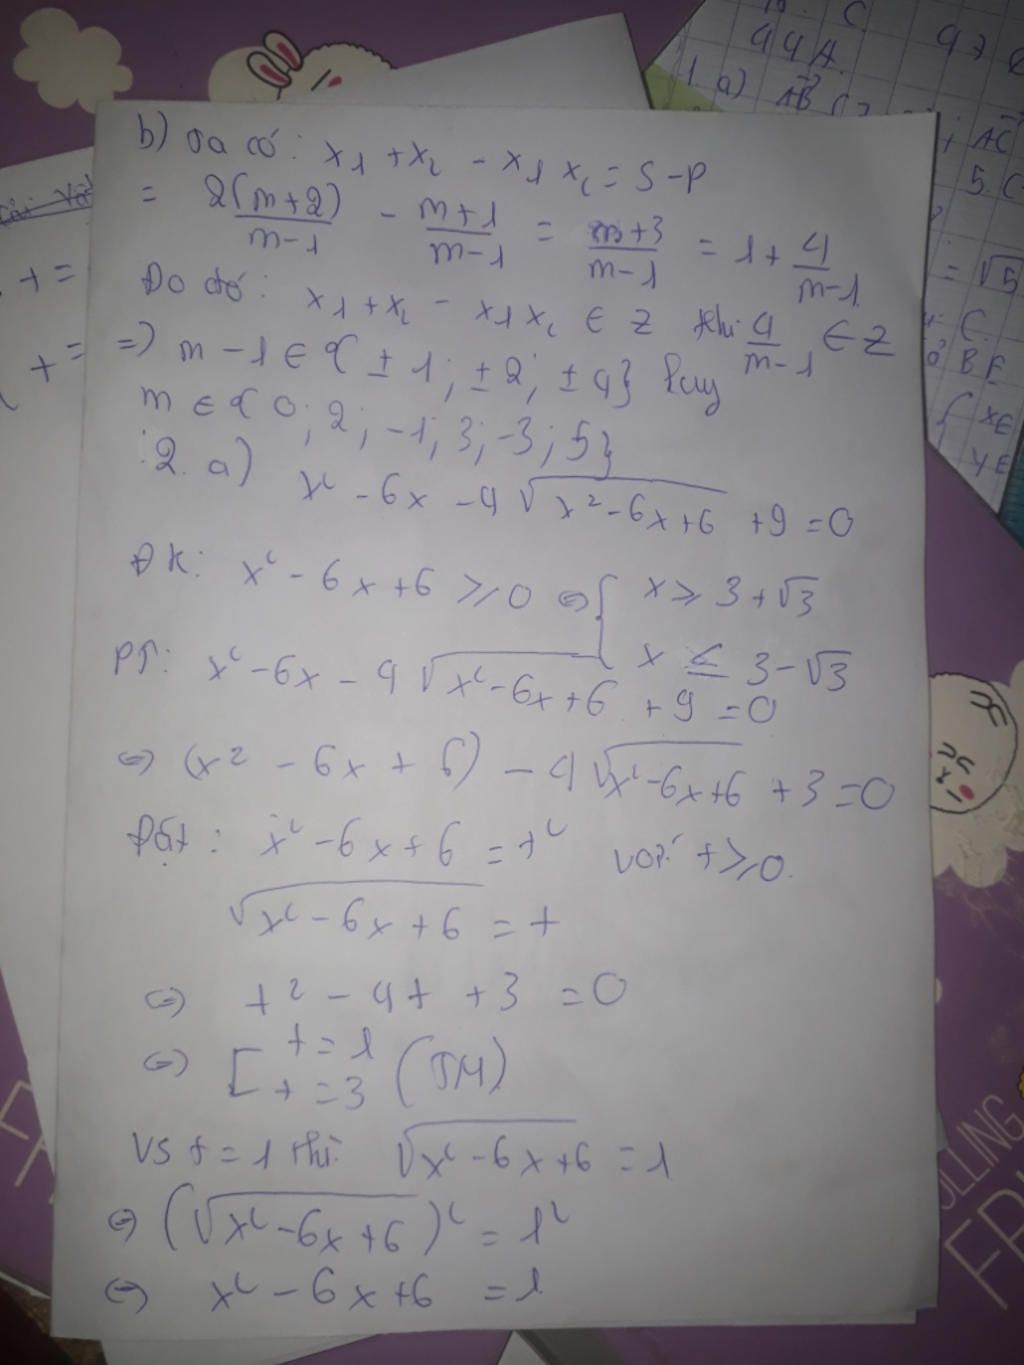 b) Ta có: x1 + x2 - x1 x2 = S - P
= 2(m+2)/m-1 - m+1/m-1 = m+3/m-1 = 1 + 4/m-1
Do đó: x1 + x2 - x1 x2 ∈ Z khi 4/m-1 ∈ Z
=> m - 1 ∈ { ±1; ±2; ±4} hay
m ∈ { 0; 2; -1; 3; -3; 5}
2. a) x² - 6x - 4√(x² - 6x + 6) + 9 = 0
ĐK: x² - 6x + 6 ≥ 0 ⇔ { x ≥ 3 + √3
x ≤ 3 - √3
PT: x² - 6x - 4√(x² - 6x + 6) + 9 = 0
⇔ (x² - 6x + 6) - 4√(x² - 6x + 6) + 3 = 0
Đặt: x² - 6x + 6 = t² với t ≥ 0.
√(x² - 6x + 6) = t
⇔ t² - 4t + 3 = 0
⇔ [ t = 1
t = 3 (TM)
VS t = 1 thì: √(x² - 6x + 6) = 1
⇔ (√(x² - 6x + 6))² = 1²
⇔ x² - 6x + 6 = 1
C.
44A.
1. a) AB
AC
5. C
= √5
C.
BE
{ XE
YE
t =
t =
LLING